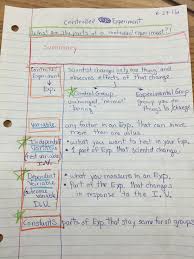 Controlled Experiment
What are the parts of a controlled experiment?
Summary
Controlled Experiment Exp. Scientist changes only one thing and observes effects of that change
Control Group Experimental Group
unchanged, "normal" group group you do things to change
Variable any factor in an Exp. that can have more than one value
Independent Variable what you want to test in your Exp.
I.V. 1 part of Exp. that scientist changes
Dependent Variable what you measure in an Exp.
D.V. Part of the Exp. that changes in response to the I.V.
Constants parts of Exp. that stay same for all groups